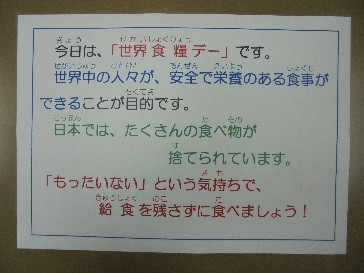 今日は、「世界食糧デー」です。
世界中の人々が、安全で栄養のある食事が
できることが目的です。
日本では、たくさんの食べ物が
捨てられています。
「もったいない」という気持ちで、
給食を残さずに食べましょう！